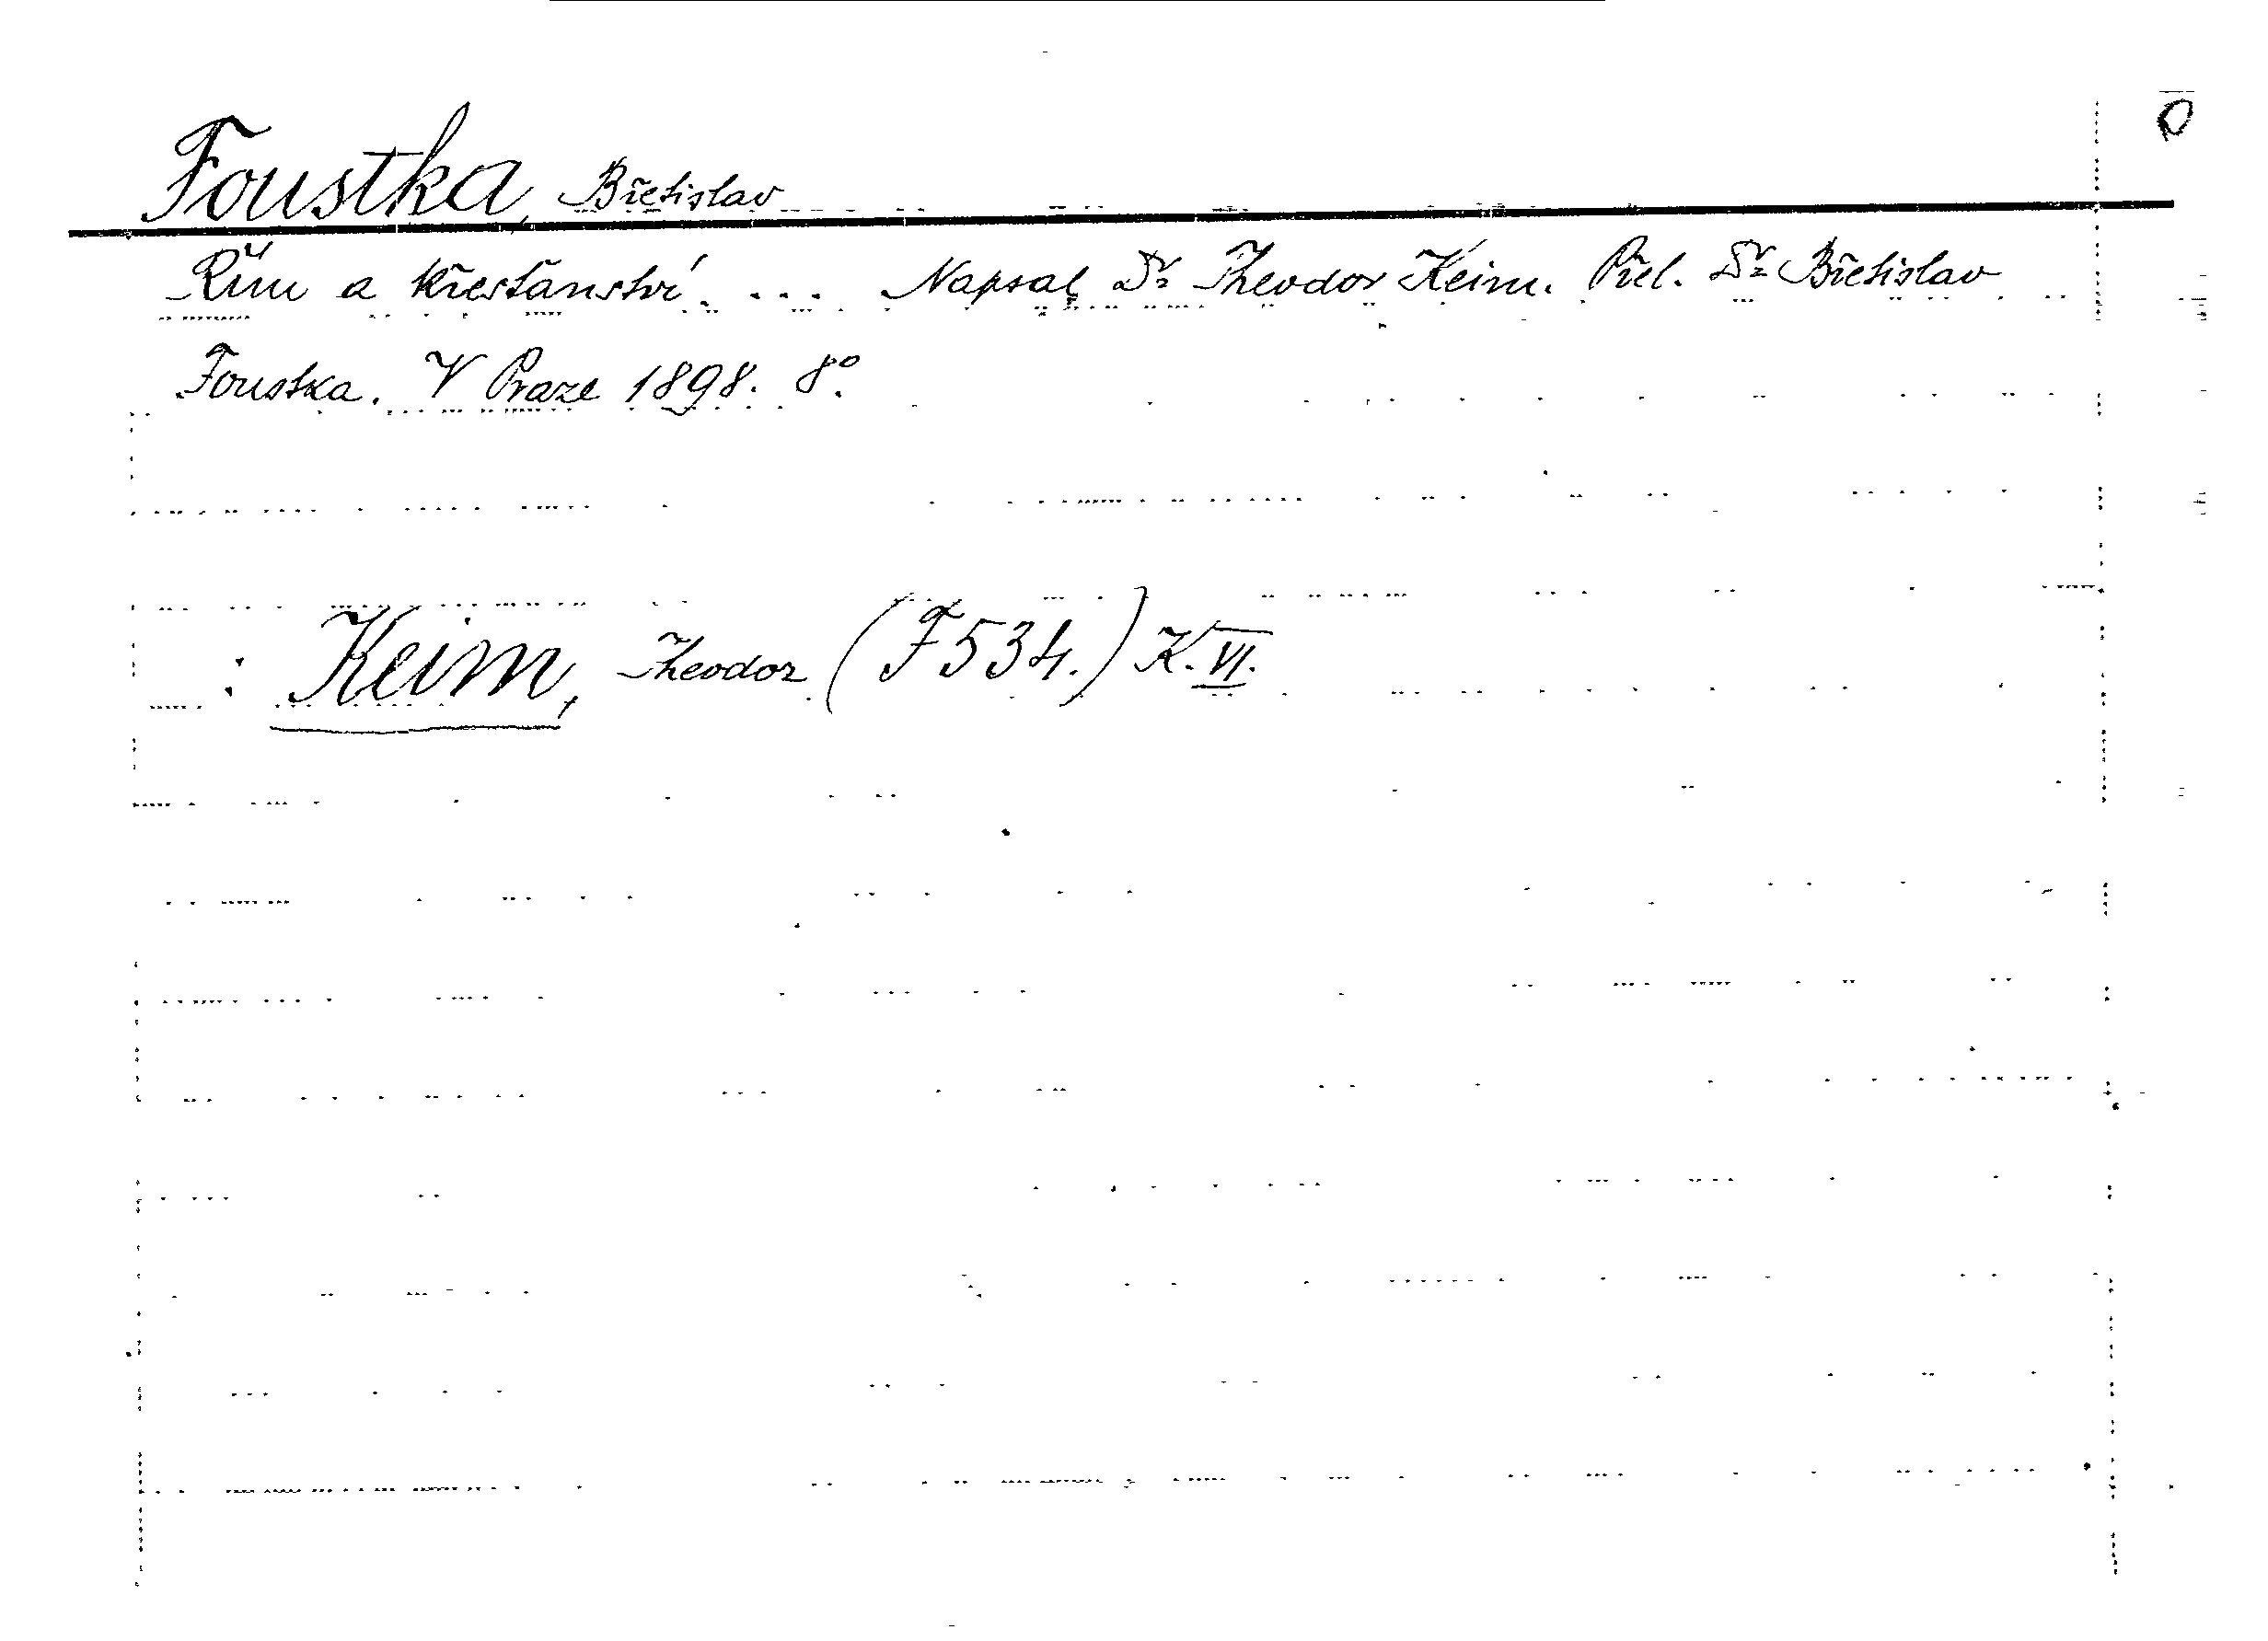 Foustka, Břetislav
Řím a křesťanství. ... Napsal Dr Theodor Keim. Přel. Dr Břetislav
Foustka. V Praze 1898. 8°.
: Keim, Theodor (F 534.) K. VI.